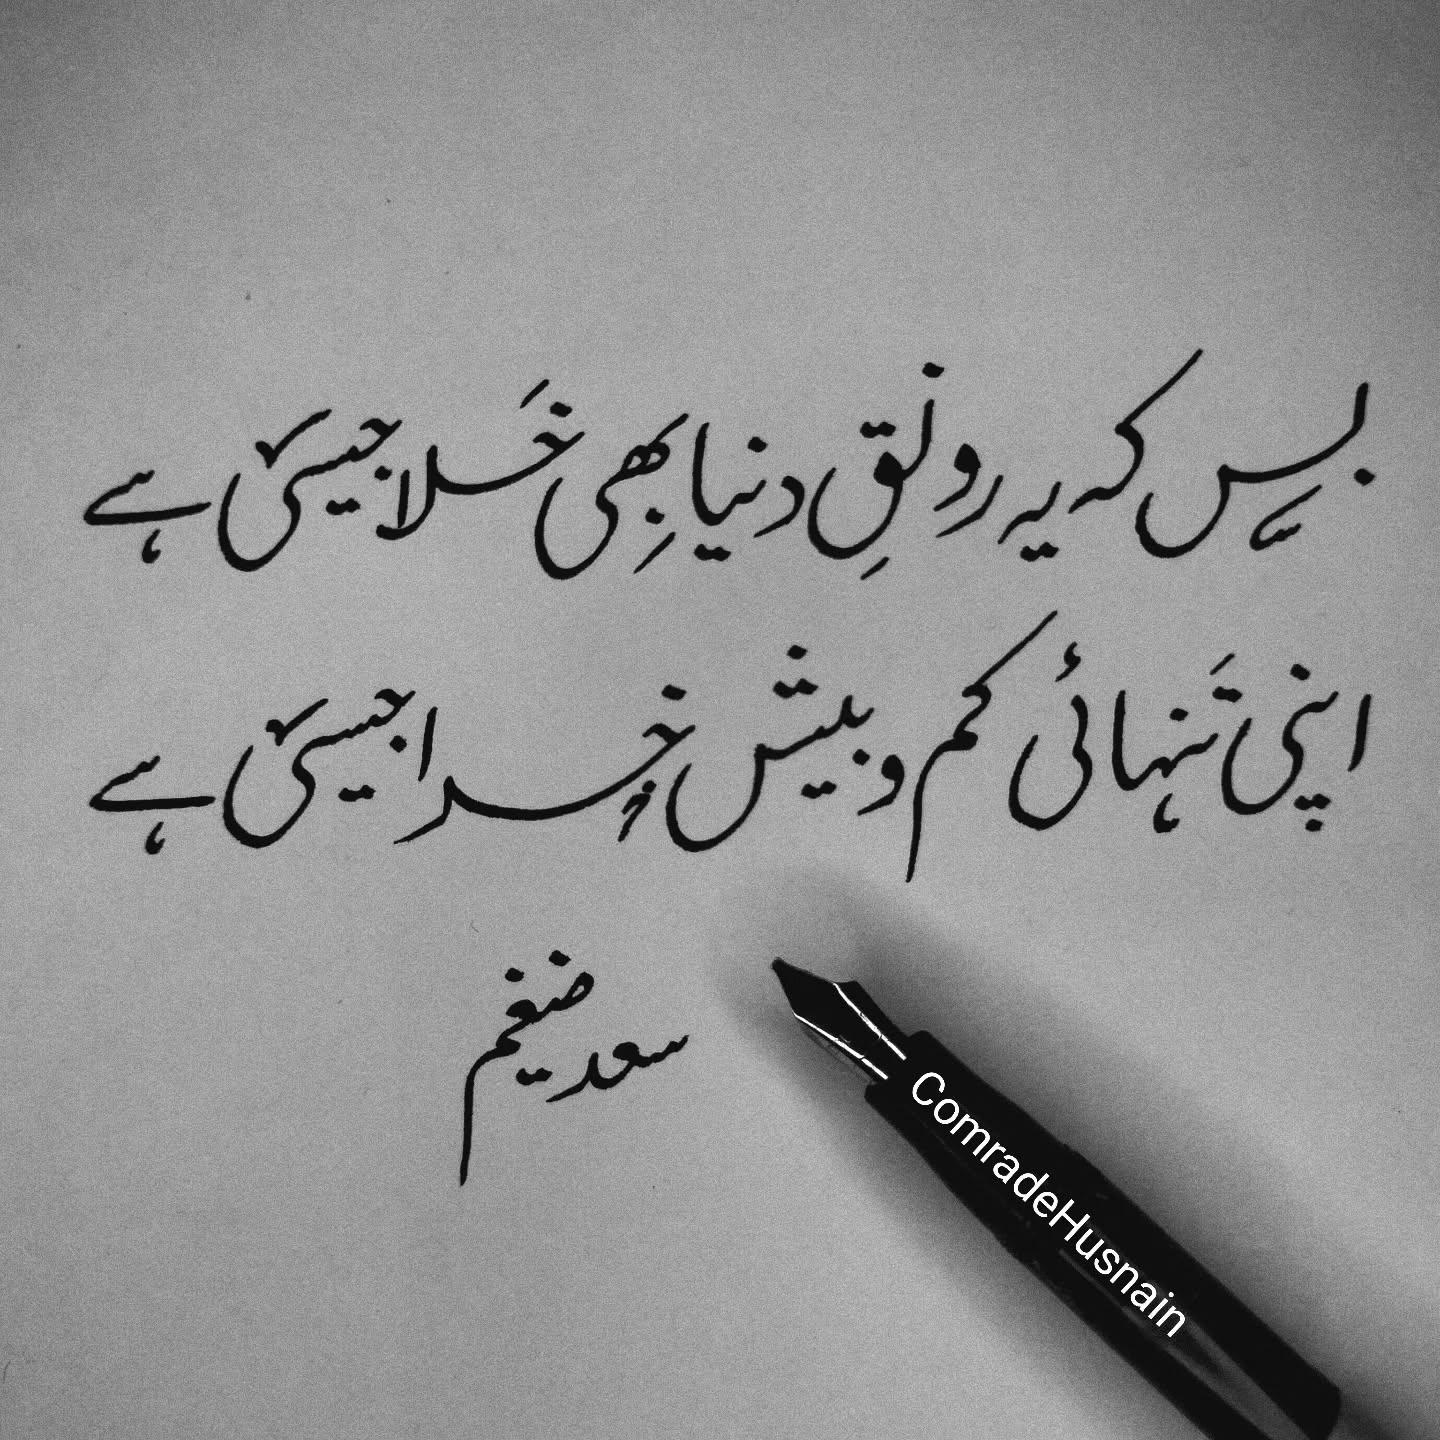 بس کہ یہ رونقِ دنیا بھِی خَلا جیسی ہے
اپنی تَنہائی کم و بیش خُدا جیسی ہے
سعد ضیغم
ComradeHusnain